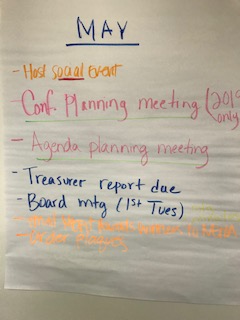 MAY
- Host social Event
- Conf. Planning meeting (2019 only
- Agenda planning meeting
- Treasurer report due
- Board mtg (1st Tues)